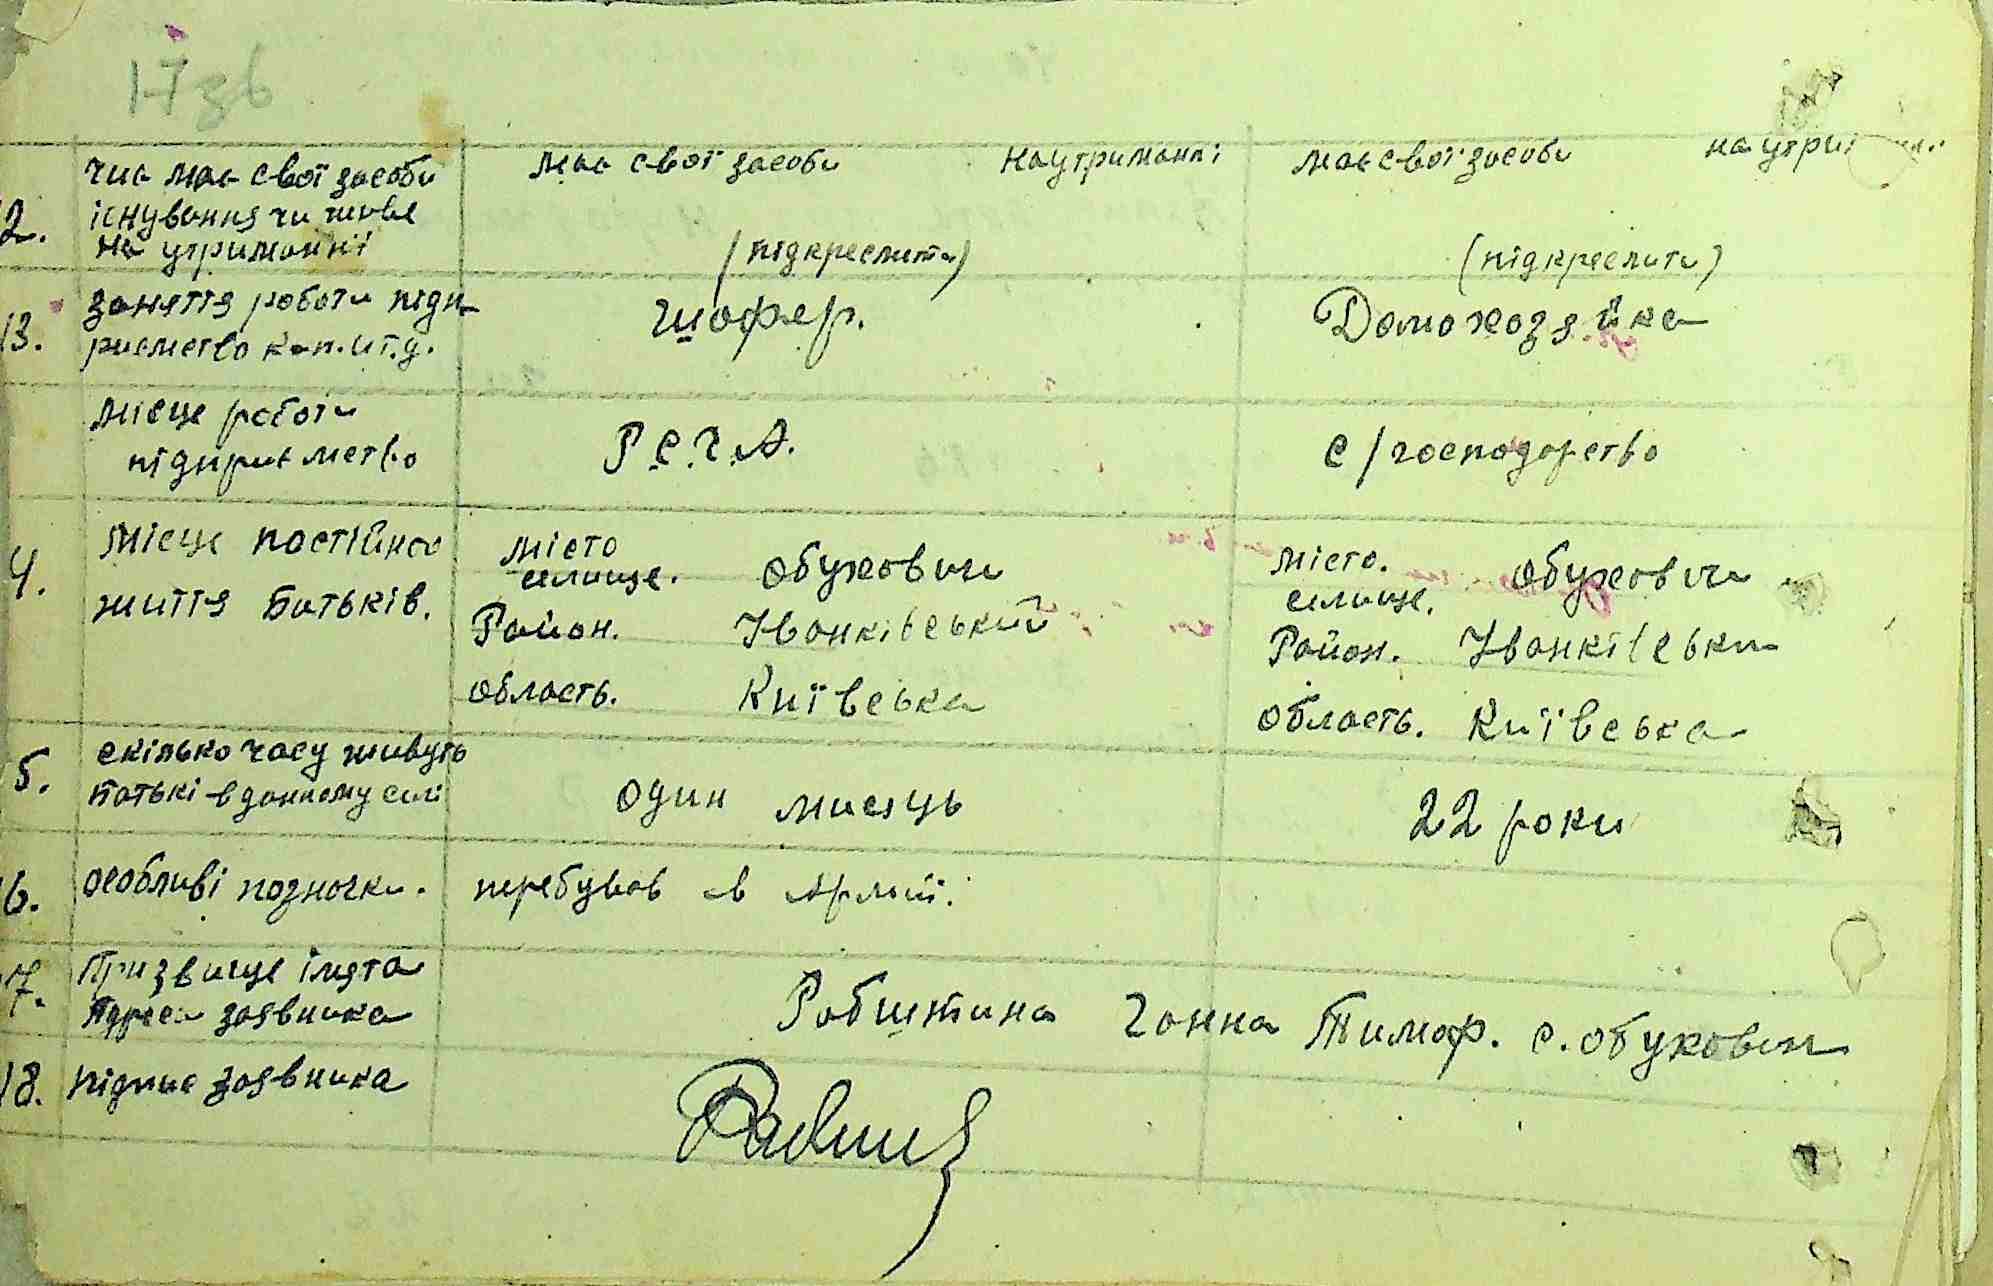 17 зв
12. чи має свої засоби існування чи живе на утриманні
має свої засоби на утриманні
(підкреслити)
має свої засоби на утри
(підкреслити)
13. заняття роботи підп-
риємство кол. и т.д.
шофер.
Домохозяйка
місце роботи
підприємство
Р.С.Ч.А.
с/господарство
4. місце постійного
життя батьків.
місто
селище. Обуховичи
Район. Іванківський
область. Київська
місто.
селище. Обуховичи
Район. Іванківськи
область. Київська
5. скілько часу живуть
батькі в данному селі
один мисяць
22 роки
16. особливі позночки.
перебував в армії.
17. Призвище імя та
адреса заявника
Рабштина Ганна Тимоф. с. Обуховичи
18. підпис заявника